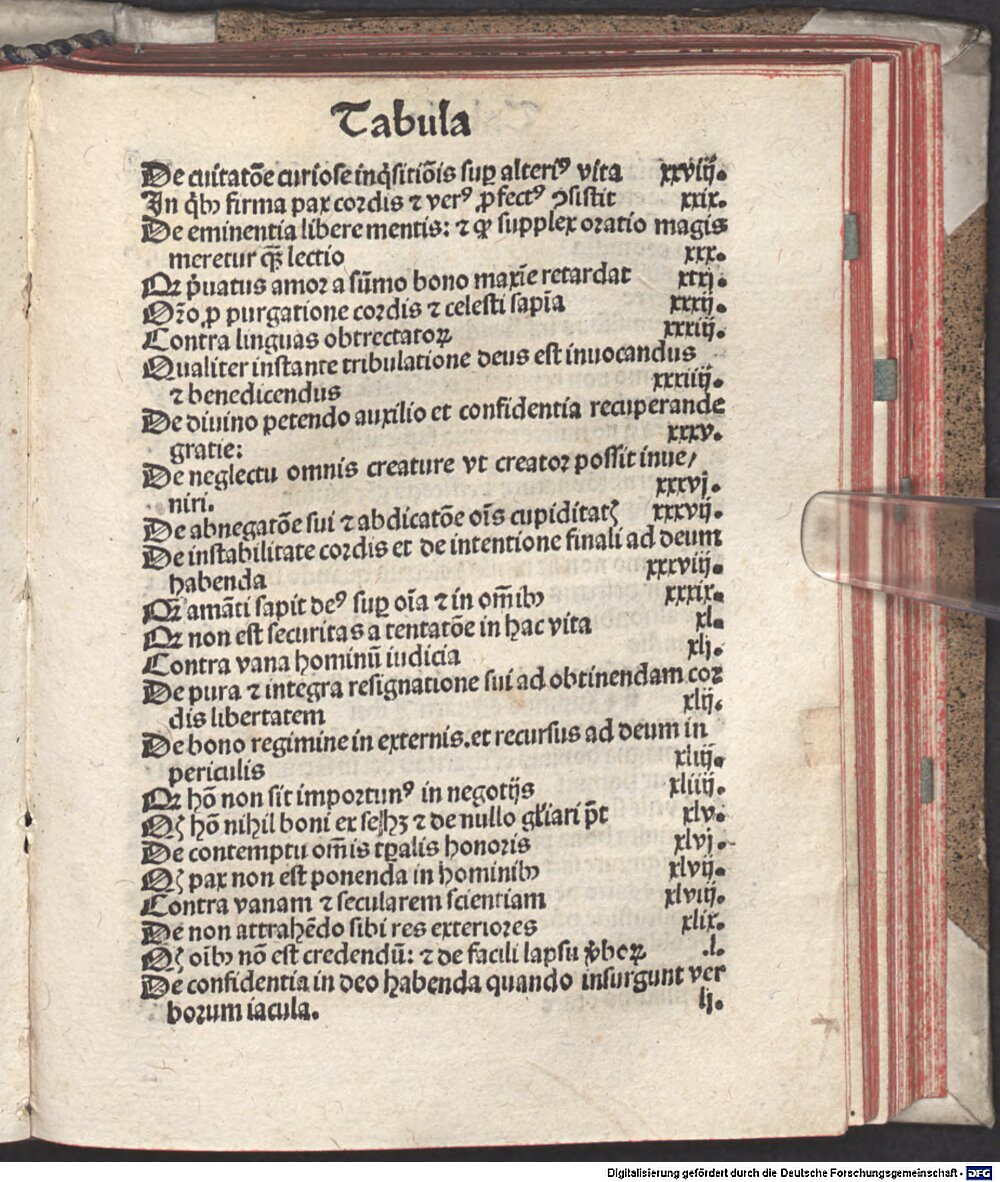 Tabula
De cuitatōe curiose inq̇sitiōis suꝑ alteriꝰ vita xxviij.
In q̇bꝫ firma pax cordis ⁊ verꝰ ꝓfectꝰ ꝯsistit xxix.
De eminentia libere mentis: ⁊ ꝙ supplex oratio magis
meretur qꝫ̄ lectio xxx.
Qꝛ p̄uatus amor a sūmo bono maxīe retardat xxxj.
Oꝛ̄o ꝓ purgatione cordis ⁊ celesti sapīa xxxij.
Contra linguas obtrectatoꝝ xxxiij.
Qualiter instante tribulatione deus est inuocandus
⁊ benedicendus xxxiiij.
De diuino petendo auxilio et confidentia recuperande
gratie: xxxv.
De neglectu omnis creature vt creator possit inue/
niri. xxxvj.
De abnegatōe sui ⁊ abdicatōe oīs cupiditatꝭ xxxvij.
De instabilitate cordis et de intentione finali ad deum
habenda xxxviij.
Qꝛ amāti sapit deꝰ suꝑ oīa ⁊ in om̄ibꝫ xxxix.
Qꝛ non est securitas a tentatōe in hac vita xl.
Contra vana hominū iudicia xlj.
De pura ⁊ integra resignatione sui ad obtinendam cor
dis libertatem xlij.
De bono regimine in externis.et recursus ad deum in
periculis xliij.
Qꝛ hō non sit importunꝰ in negotijs xliiij.
Qꝭ hō nihil boni ex se hꝫ ⁊ de nullo gl̄iari p̄t xlv.
De contemptu om̄is tꝑalis honoris xlvj.
Qꝭ pax non est ponenda in hominibꝫ xlvij.
Contra vanam ⁊ secularem scientiam xlviij.
De non attrahēdo sibi res exteriores xlix.
Qꝭ oībꝫ nō est credendū: ⁊ de facili lapsu v̄boꝝ .l.
De confidentia in deo habenda quando insurgunt ver
borum iacula. lj.
Digitalisierung gefördert durch die Deutsche Forschungsgemeinschaft - DFG